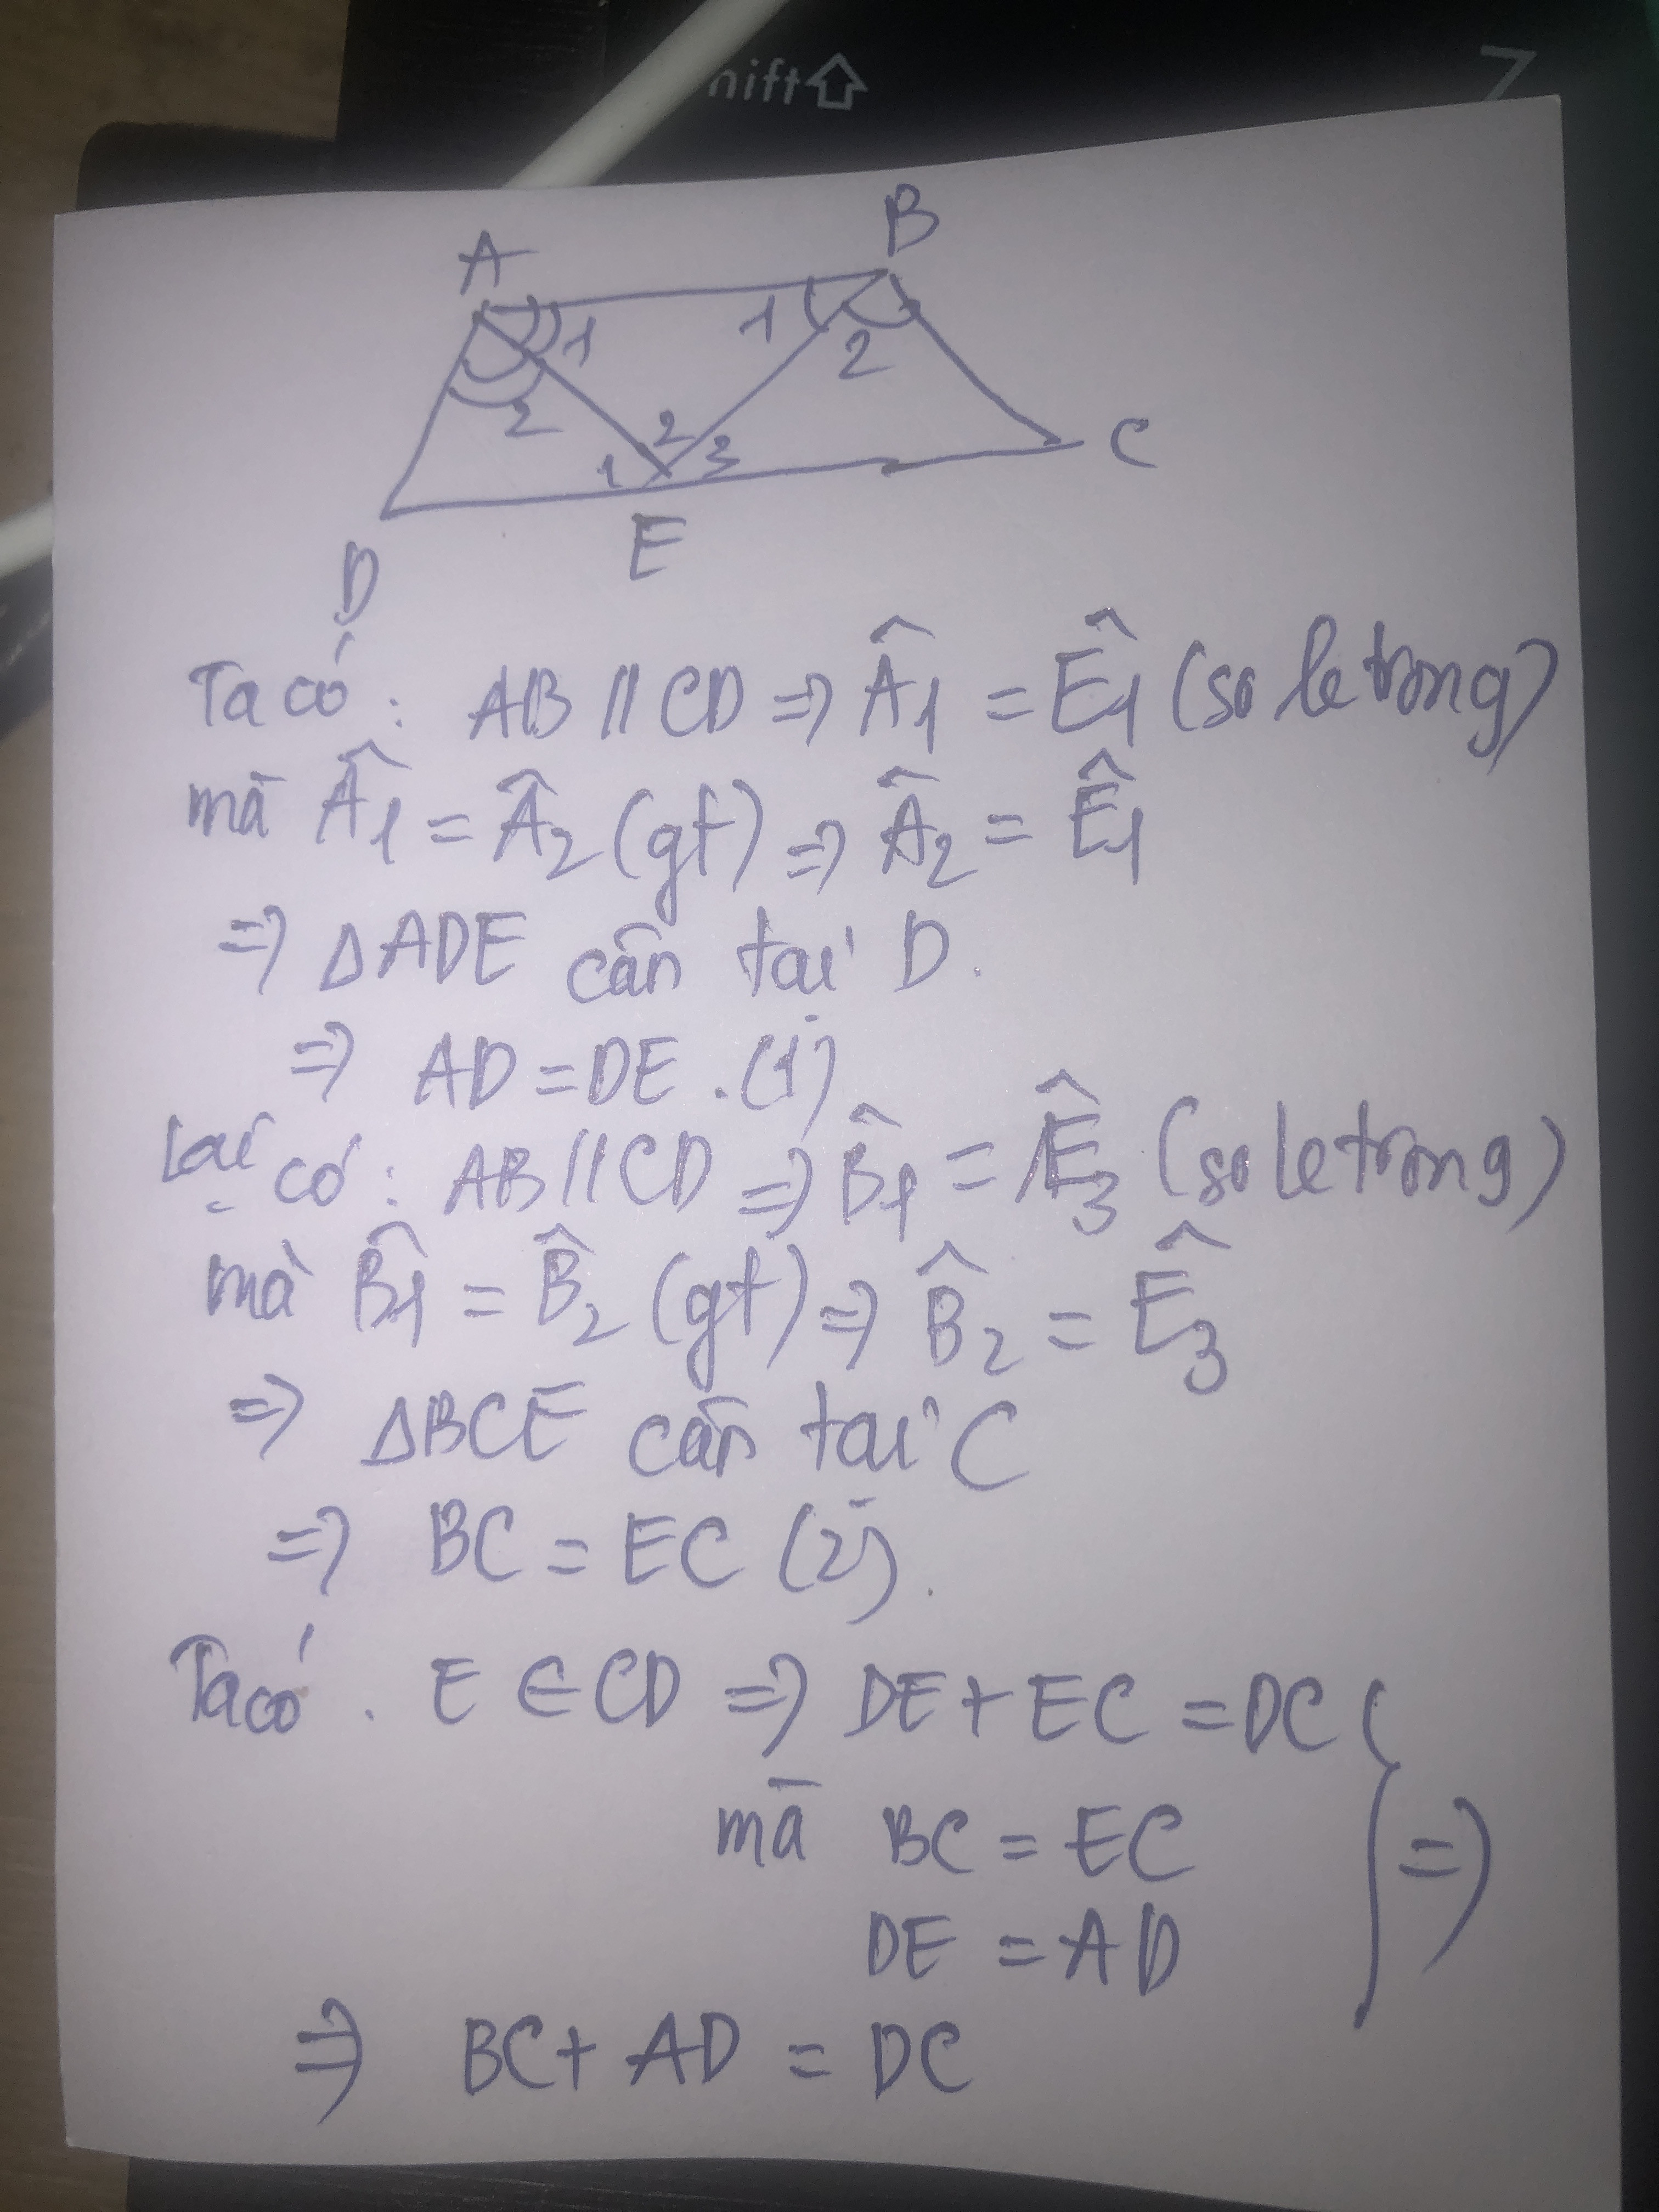 hift⇧
Z
A B
1 1 2
2
1 2 3 C
D E
Ta có: AB // CD => Â1 = Ê1 (so le trong)
mà Â1 = Â2 (gt) => Â2 = Ê1
=> ΔADE cân tại D.
=> AD = DE. (1)
Lại có: AB // CD => B̂1 = Ê3 (so le trong)
mà B̂1 = B̂2 (gt) => B̂2 = Ê3
=> ΔBCE cân tại C
=> BC = EC (2).
Ta có. E ∈ CD => DE + EC = DC
mà BC = EC } =>
DE = AD
=> BC + AD = DC